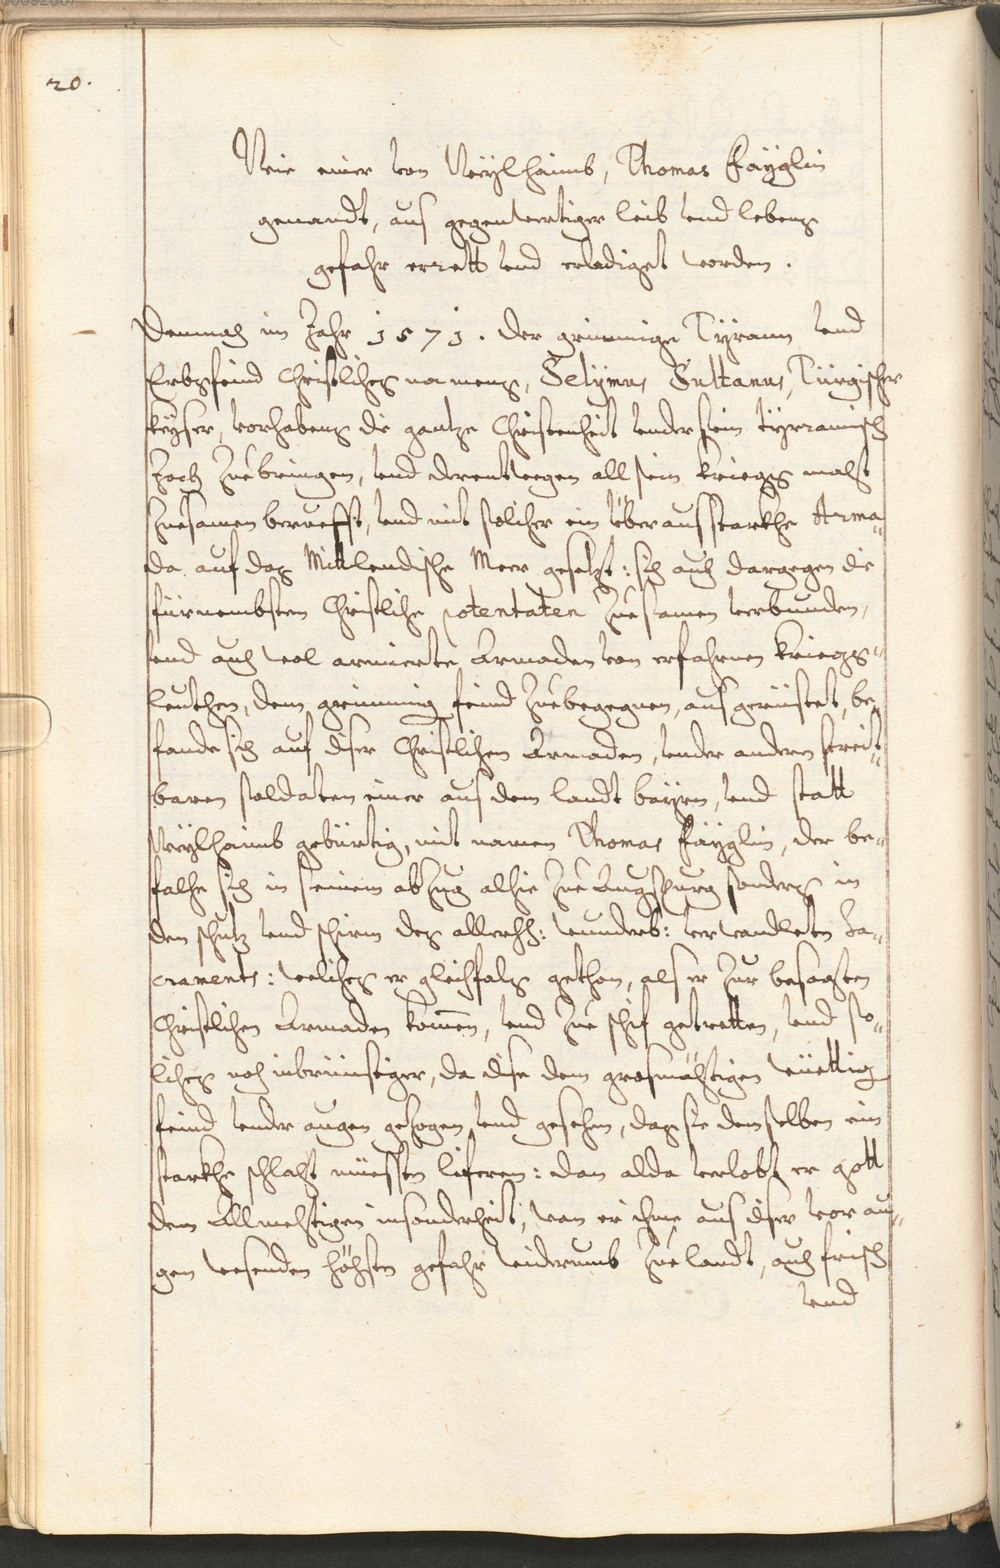 20.
Wie einer von Weylhaimb, Thomas Fäyglin
genandt, aus gegenwertiger leib vnd lebens
gefahr errett vnd erlediget worden.
Demnach im Jahr 1571. der grimmige Tyrann vnd
Erbsfeind Christliches namens, Selymus Sultanus, Türgischer
keyser, vorhabens die gantze Christenheit vnder sein tyrranisch
Joch Zuebringen, vnd derentwegen all sein kriegs macht
Zuesamen beruefft, vnd mit solcher ein überausstarkhe Arma„
da auf das Mittlendische Meer gesetzt: sich auch dargegen die
fürnembsten Christliche potentaten Zuesamen verbunden,
vnd auch wol armierte Armaden von erfahrnen kriegs„
leuthen, dem grimmig feind Zuebegegnen, ausgerüstet, be„
fande sich auf diser Christlichen Armaden, vnder andern streit„
baren soldaten einer aus dem landt bayrn, vnd statt
Weylhaimb gebürtig, mit namen Thomas Fäyglin, der be„
falhe sich in seinem abZug alhie Zue Augspurg sonders in
den schutz vnd schirm des allerhh: wunderb: verwandleten Sa„
craments: welches er gleichfals gethan, als er Zur besagten
Christlichen Armaden kommen, vnd Zue schif getretten, vnd so„
liches noch inbrünstiger, da dise dem grosmächtigen wüettig
feind vnder augen gezogen, vnd gesehen, das sie demselben ein
starkhe schlacht müessten liferen: dan alda verlobt er gott
dem Allmechtigen insonderheit, wan er ihme aus diser vor au„
gen wesenden höchsten gefahr widerumb Zue landt, auch frisch
vnd